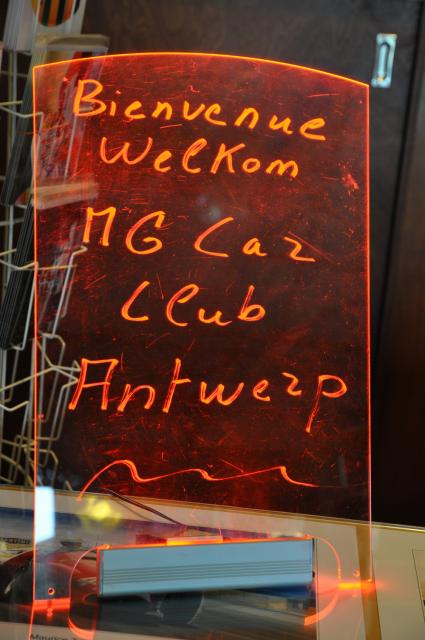 Bienvenue
Welkom
MG Car
Club
Antwerp